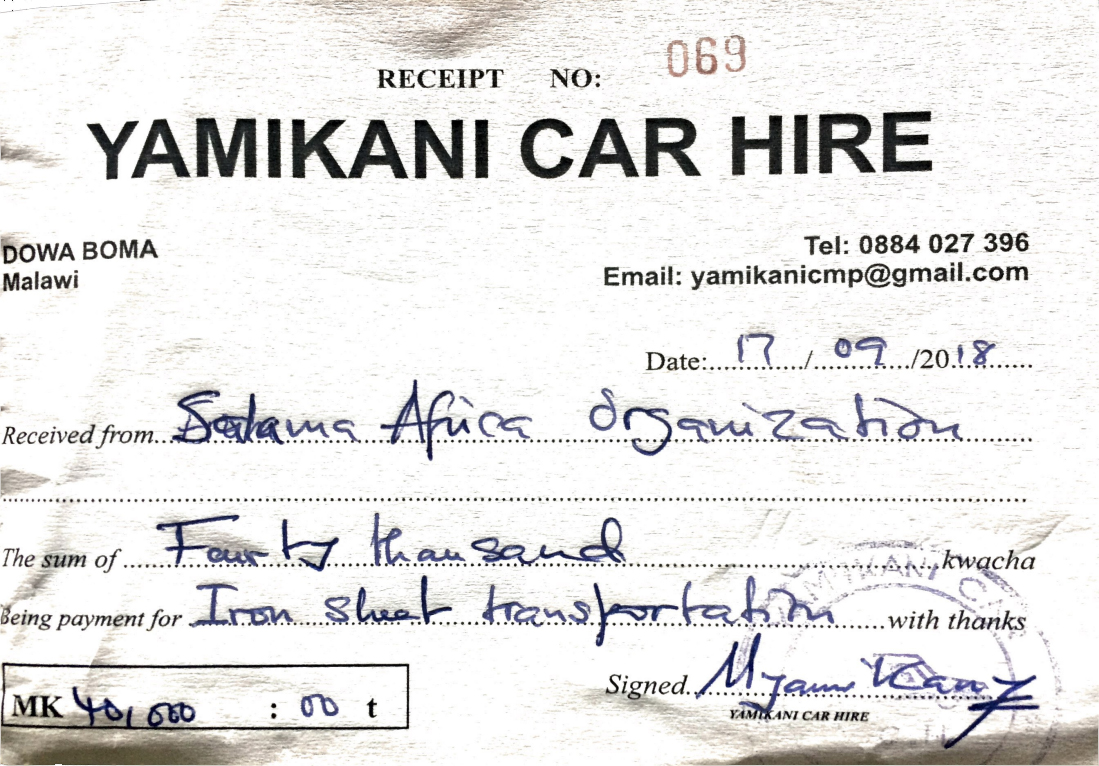 RECEIPT NO: 069
YAMIKANI CAR HIRE
DOWA BOMA
Malawi
Tel: 0884 027 396
Email: yamikanicmp@gmail.com
Date:....17..../....09..../2018......
Received from...Salama Africa Organization
The sum of ....Fourty thousand....kwacha
Being payment for Iron sheet transportation....with thanks
MK 40,000 : 00 t
Signed.
YAMIKANI CAR HIRE